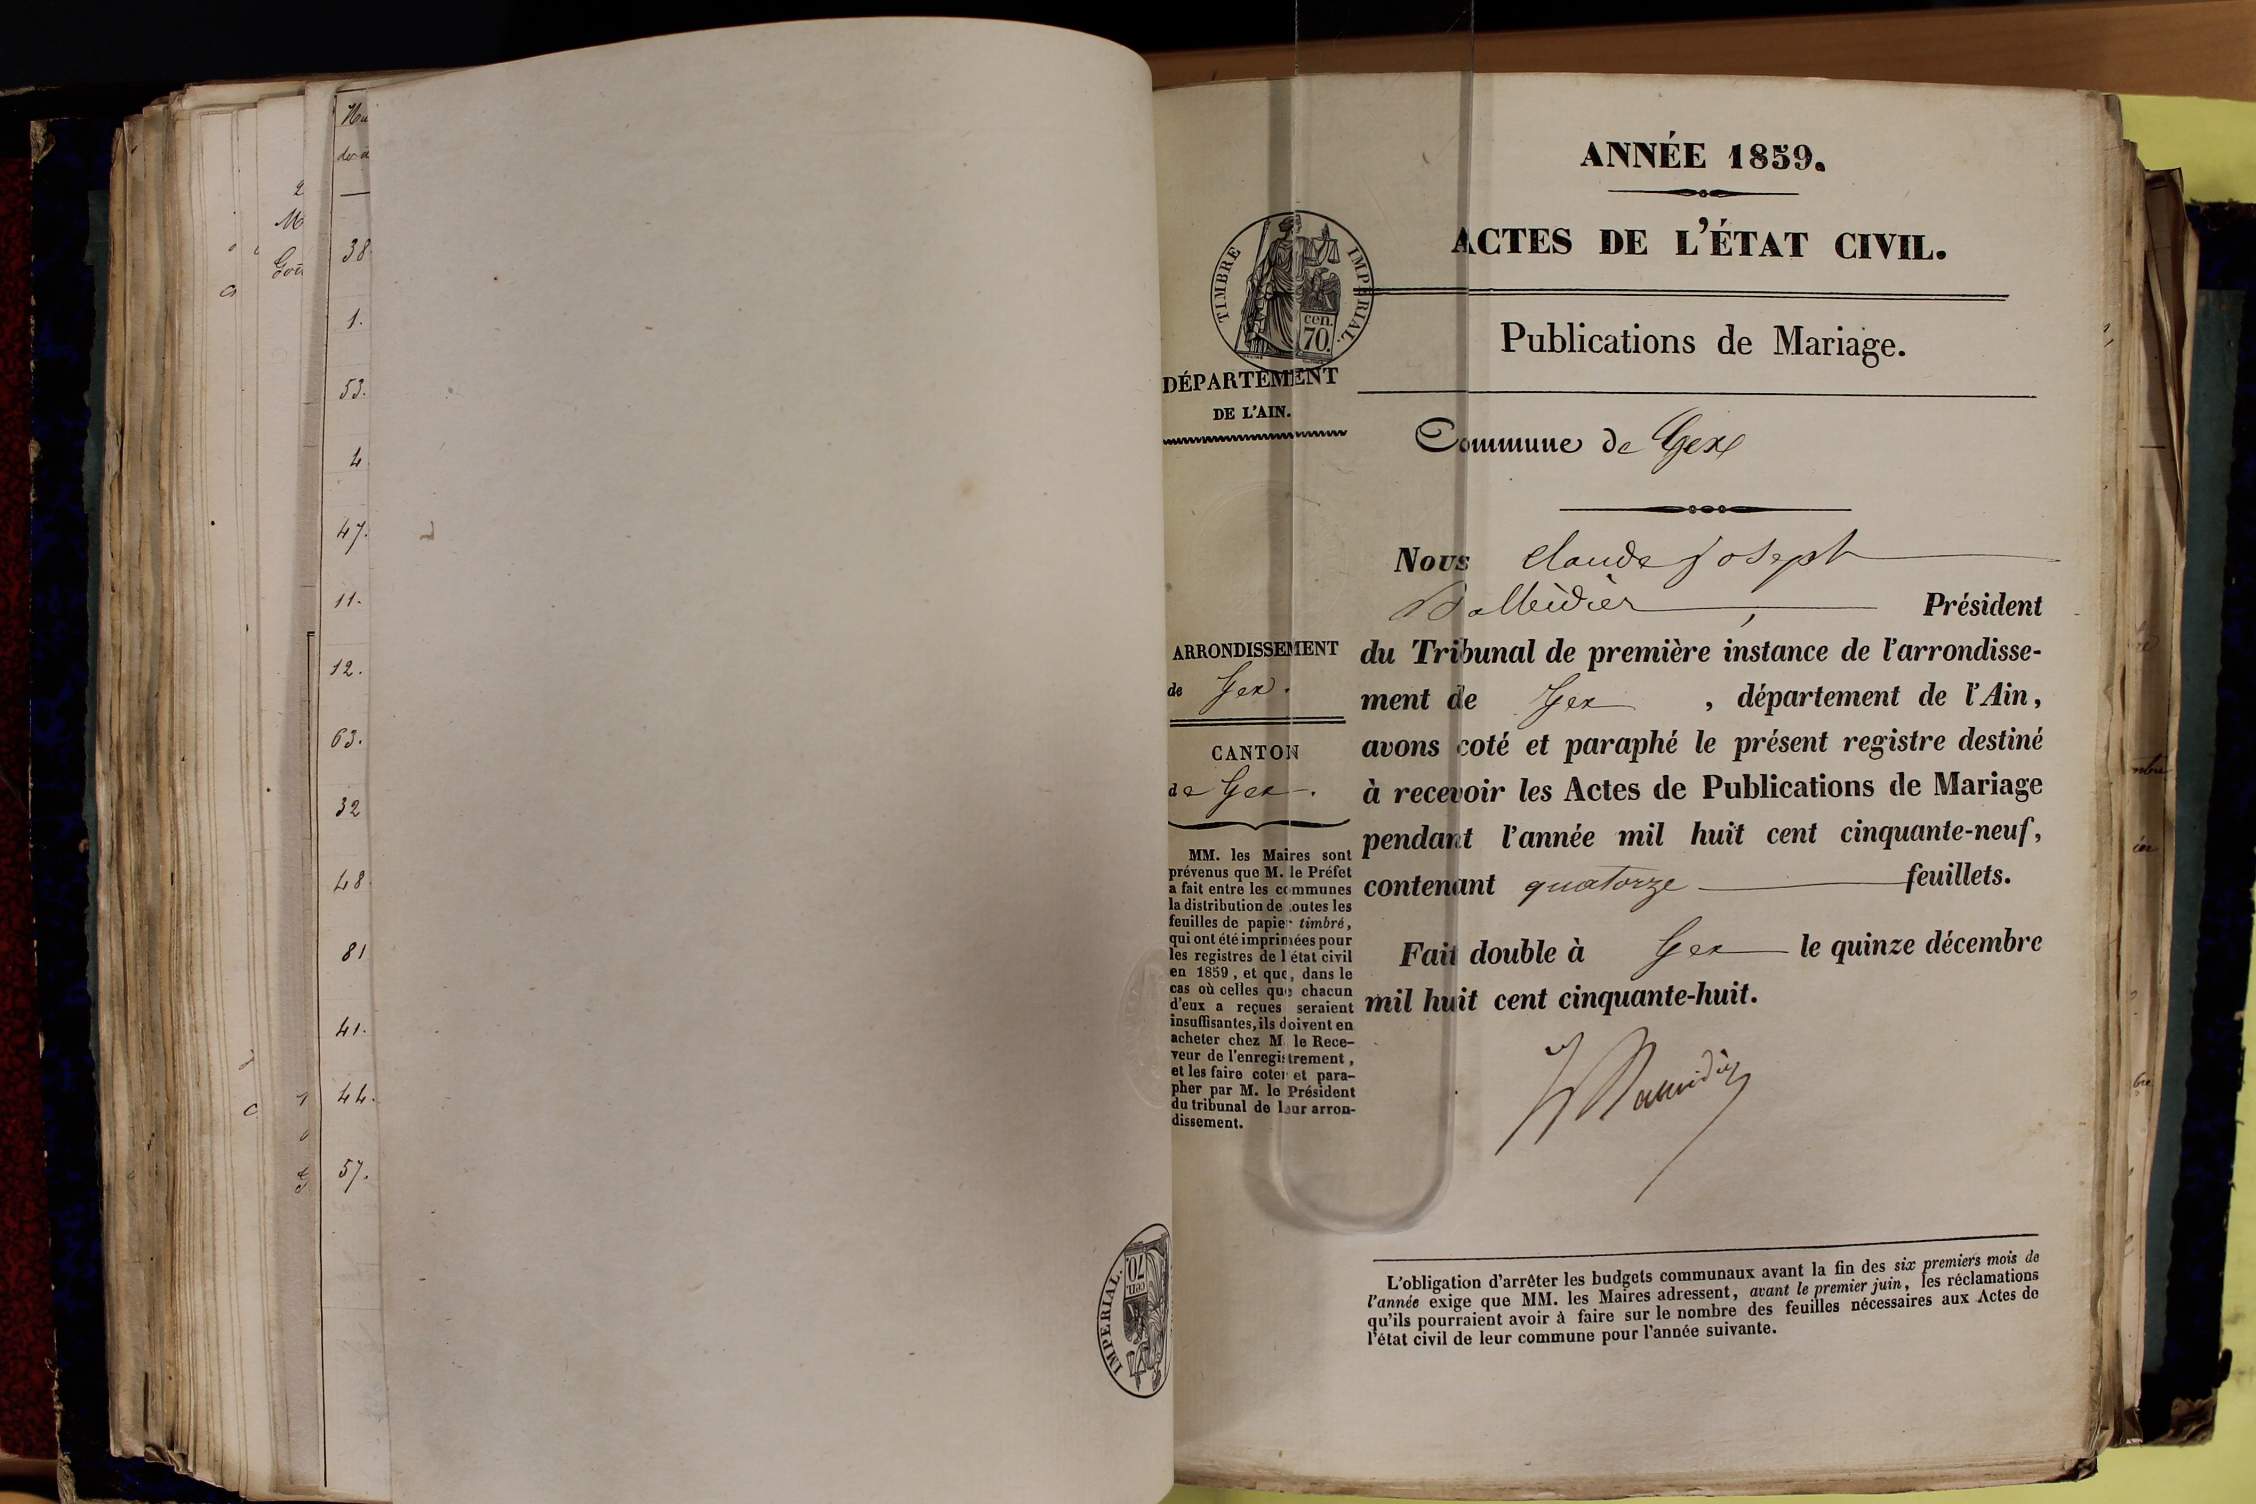 38
1.
53.
4
47.
11.
12.
63.
32
48
81
41.
44.
57.
IMPERIAL.
cen.
70.
ANNÉE 1859.
ACTES DE L'ÉTAT CIVIL.
Publications de Mariage.
TIMBRE IMPÉRIAL.
cen.
70.
DÉPARTEMENT
DE L'AIN.
ARRONDISSEMENT
de Gex.
CANTON
de Gex.
MM. les Maires sont
prévenus que M. le Préfet
a fait entre les communes
la distribution de toutes les
feuilles de papier timbré,
qui ont été imprimées pour
les registres de l'état civil
en 1859, et que, dans le
cas où celles que chacun
d'eux a reçues seraient
insuffisantes, ils doivent en
acheter chez M. le Rece-
veur de l'enregistrement,
et les faire coter et para-
pher par M. le Président
du tribunal de leur arron-
dissement.
Commune de Gex
Nous Claude joseph
Président
du Tribunal de première instance de l'arrondisse-
ment de Gex, département de l'Ain,
avons coté et paraphé le présent registre destiné
à recevoir les Actes de Publications de Mariage
pendant l'année mil huit cent cinquante-neuf,
contenant quatorze feuillets.
Fait double à Gex le quinze décembre
mil huit cent cinquante-huit.
L'obligation d'arrêter les budgets communaux avant la fin des six premiers mois de
l'année exige que MM. les Maires adressent, avant le premier juin, les réclamations
qu'ils pourraient avoir à faire sur le nombre des feuilles nécessaires aux Actes de
l'état civil de leur commune pour l'année suivante.